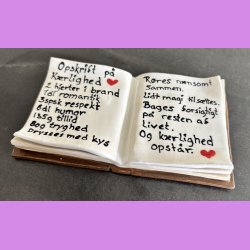 Opskrift på
Kærlighed
2 hjerter i brand
1dl romantik
3spsk respekt
8dl humor
185g tillid
80g tryghed
Drysses med kys
Røres nænsomt
sammen.
Lidt magi tilsættes.
Bages forsigtigt
på resten af
livet.
Og kærlighed
opstår.